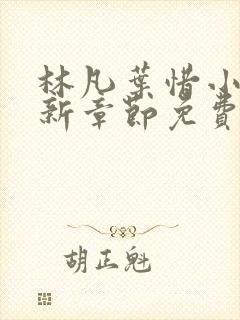 林凡葉惜小
新章節免費
胡正魁